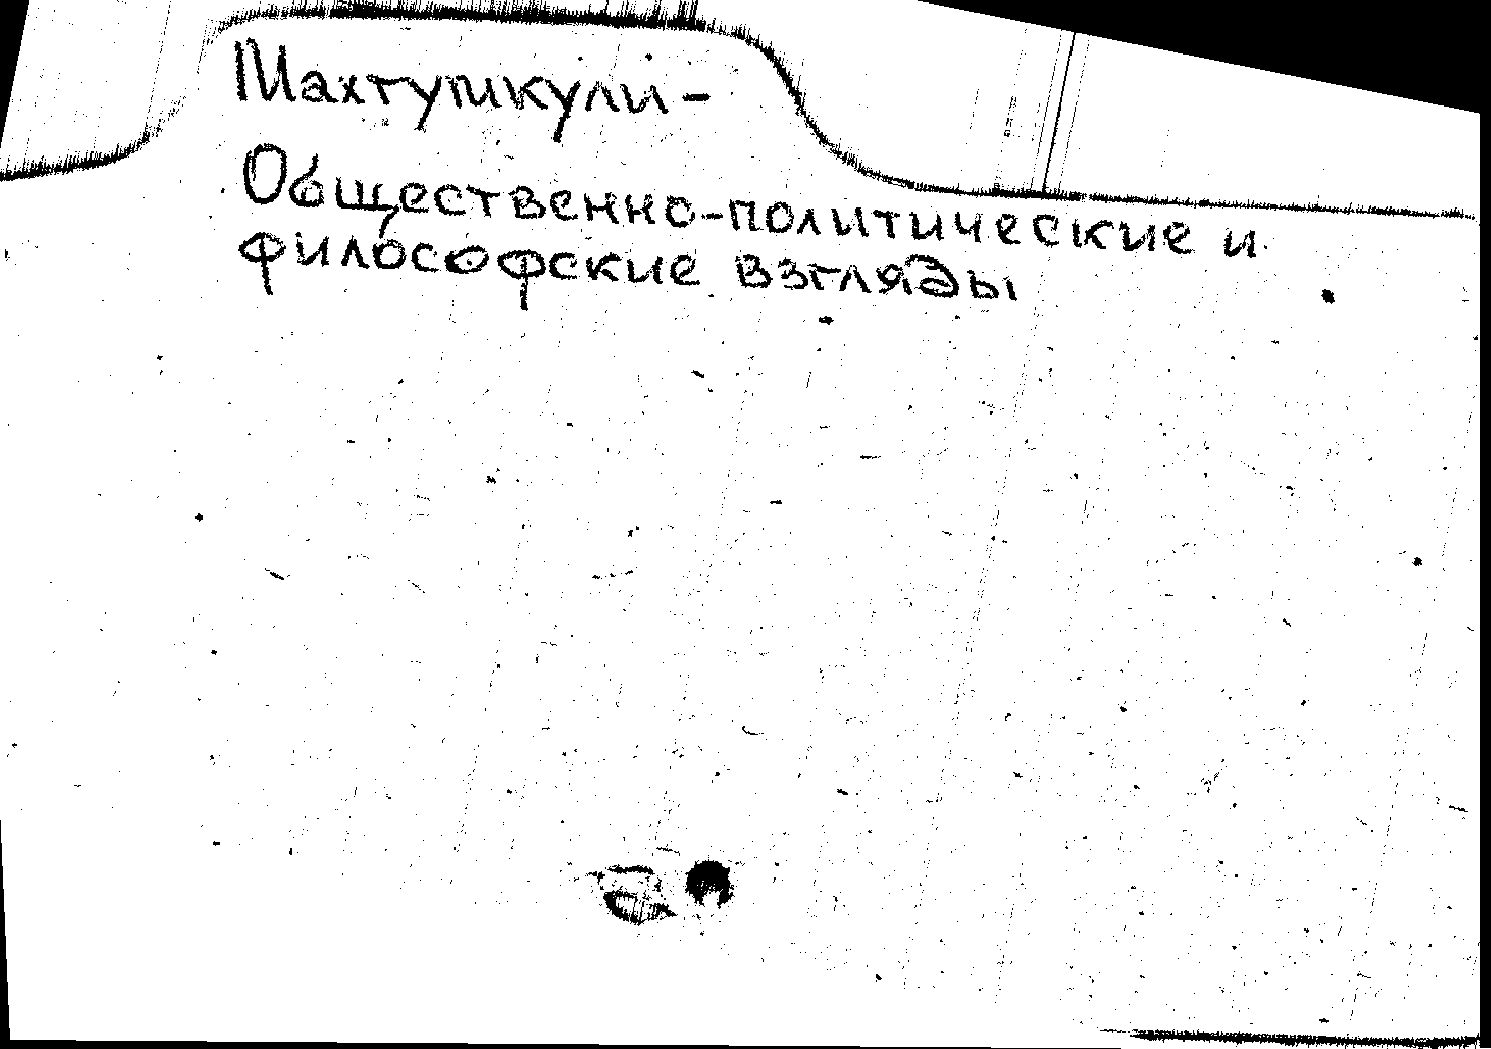 Махтумкули -
Общественно-политические и
философские взгляды